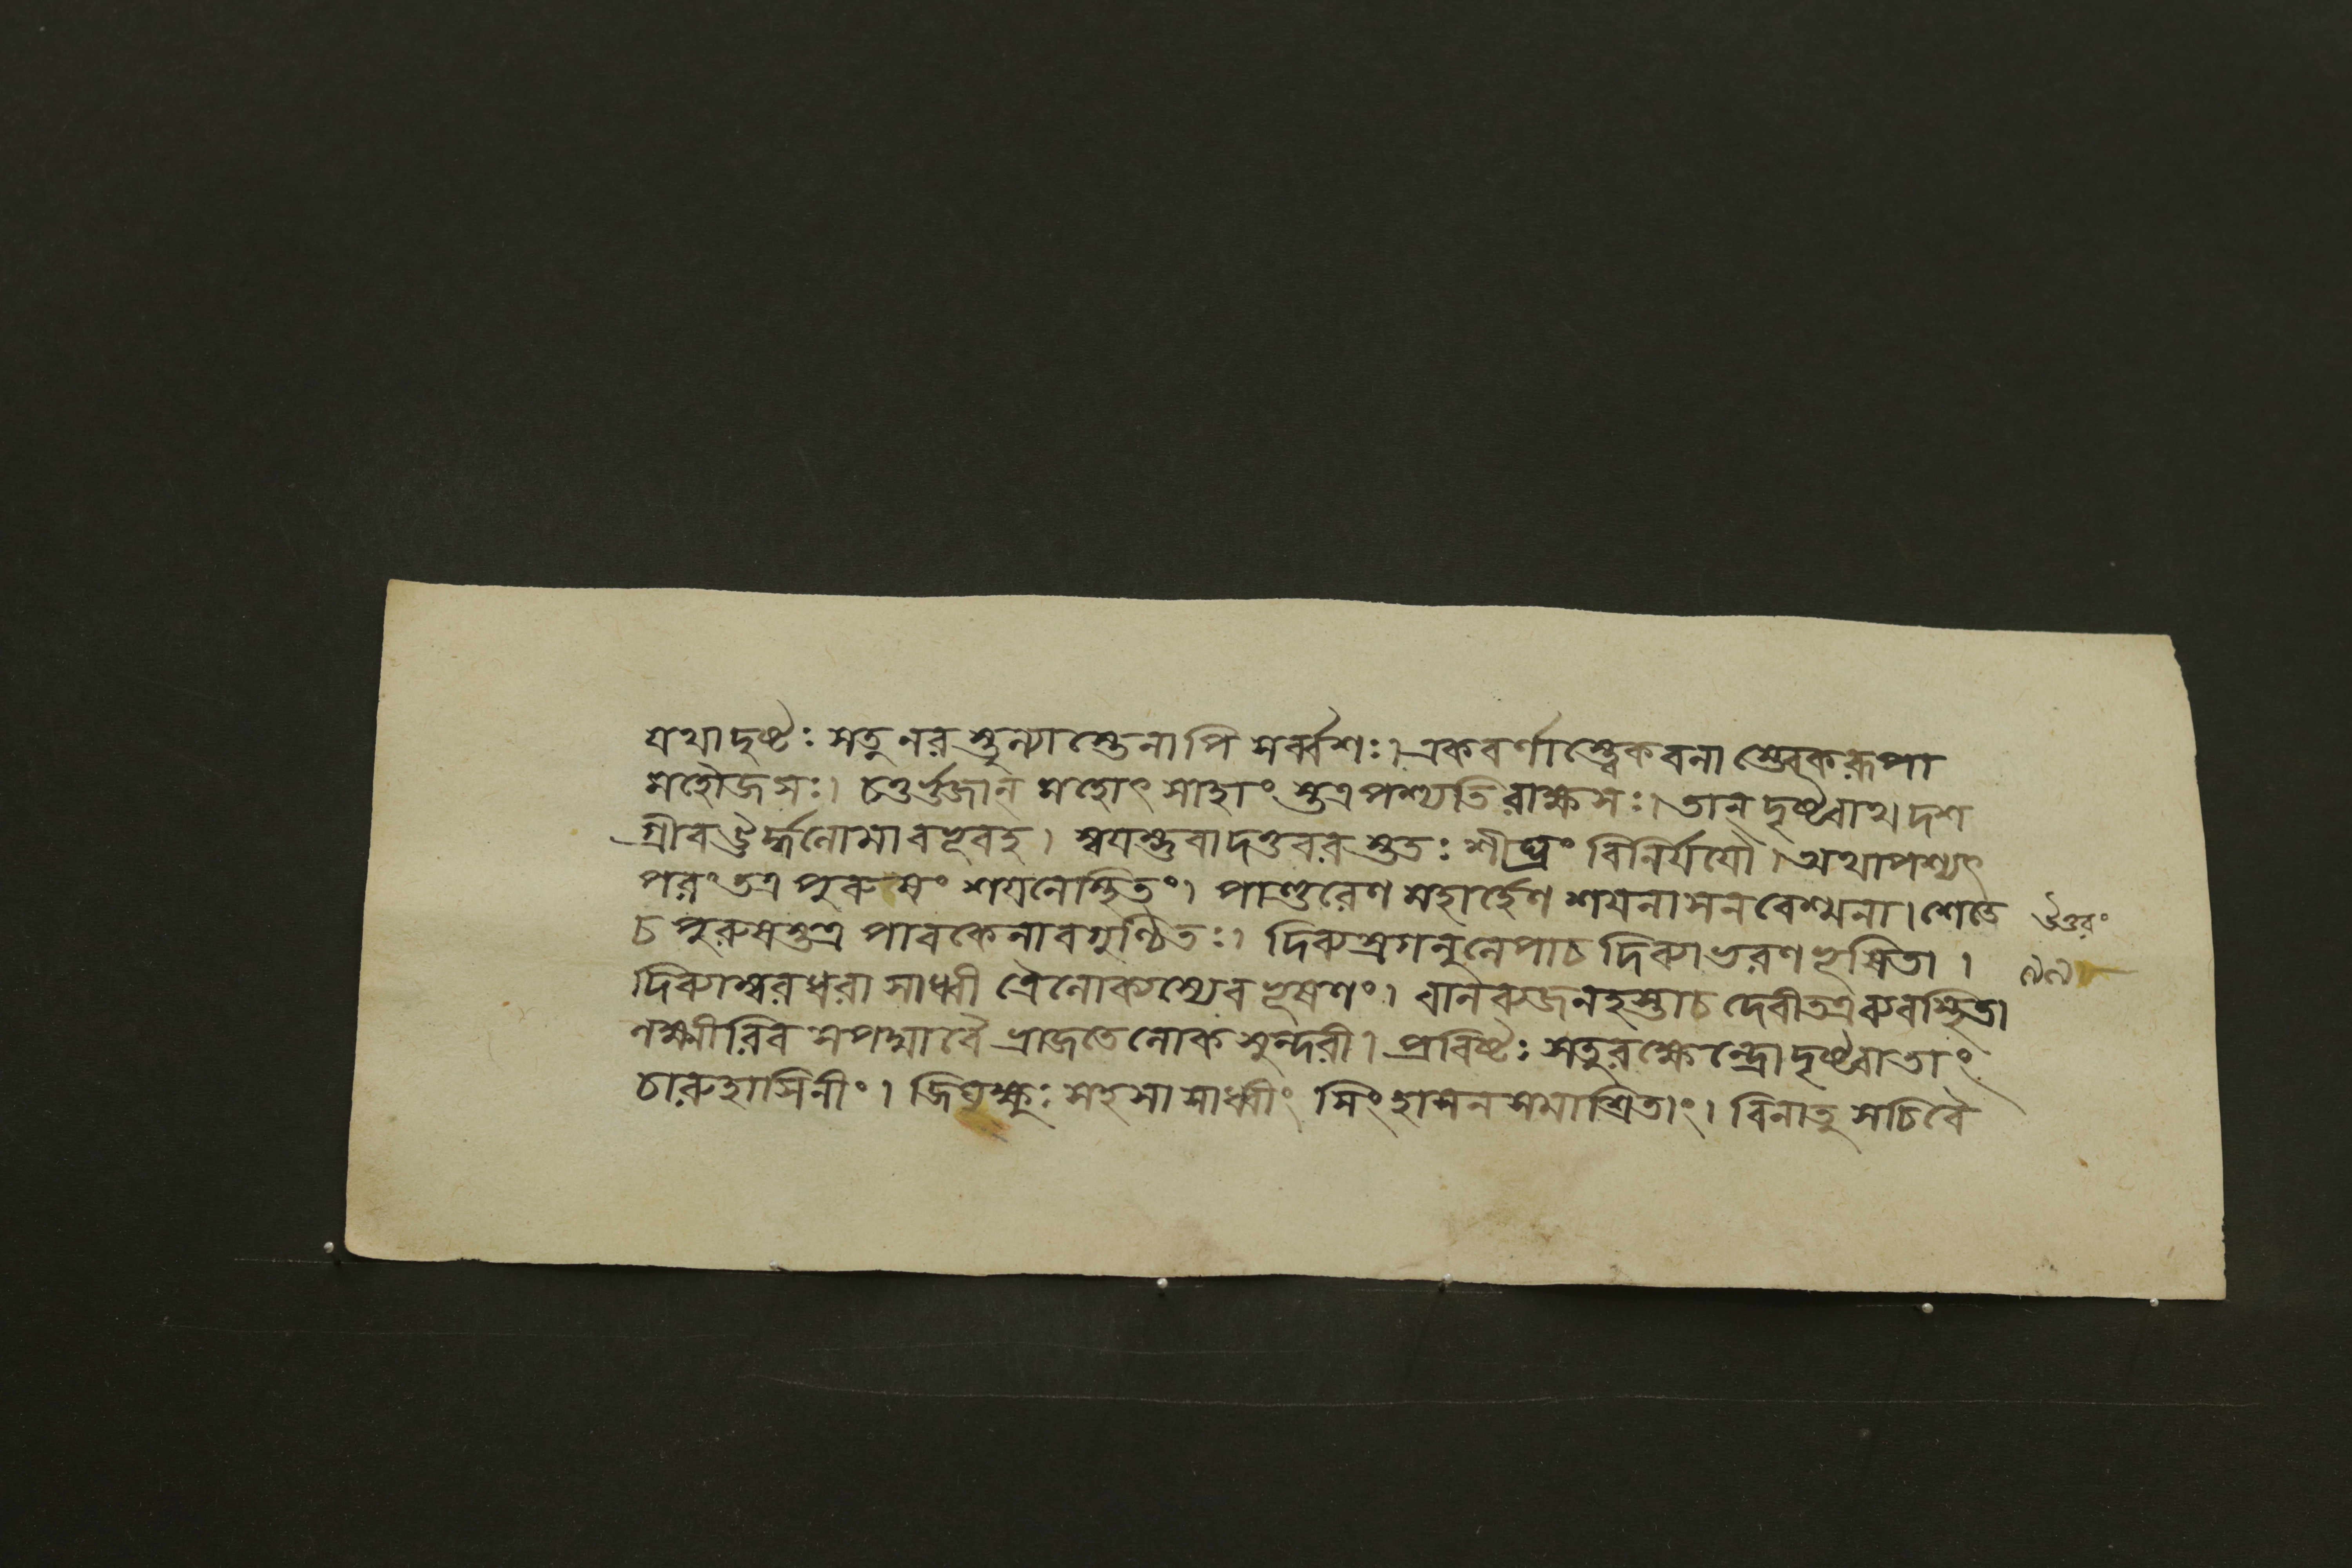 যথাদৃষ্টঃ সতু নরস্তুল্যাস্তেনাপি সর্ব্বশঃ। একবর্ণাস্ত্বেকবলাস্ত্বেকরূপা
মহৌজসঃ। চতুর্ভুজান্ মহোৎসাহাংস্তত্রপশ্যতি রাক্ষসঃ। তান্ দৃষ্ট্বাথ দশ
গ্রীবঊর্দ্ধলোমাবভূবহ। স্বয়ম্ভুবাদত্তবরস্ততঃ শীঘ্রং বিনির্যযৌ। অথাপশ্যৎ
পরং তত্র পুরুষং শয়নেস্থিতং। পাণ্ডুরেণ মহার্হেণ শয়নাসনবেশ্মনা। শেতে
চ পুরুষস্তত্র পাবকেনাবগুণ্ঠিতঃ। দিব্যস্রগনুলেপাচ দিব্যাভরণভূষিতা।
দিব্যাম্বরধরা সাধ্বী ত্রৈলোক্যস্যেব ভূষণং। বালব্যজনহস্তাচ দেবীতত্রব্যবস্থিতা
লক্ষ্মীরিব সপদ্মাবৈ ভ্রাজতে লোকসুন্দরী। প্রবিষ্টঃ সতুরক্ষেন্দ্রো দৃষ্ট্বাতাং
চারুহাসিনীং। জিঘৃক্ষুঃ সহসা সাধ্বীং সিংহাসনসমাশ্রিতাং। বিনাতু সচিবৈ
উত্তরং